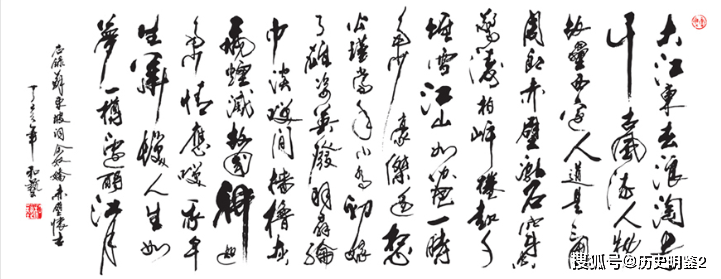 大江東去浪淘盡
千古風流人物
故壘西邊人道是三國
周郎赤壁亂石穿空
驚濤拍岸捲起千
堆雪江山如畫一時
多少豪傑遙想
公瑾當年小喬初嫁
了雄姿英發羽扇綸
巾談笑間檣櫓灰
飛煙滅故國神遊
多情應笑我早
生華髮人生如
夢一樽還酹江月
蘇東坡詞念奴嬌赤壁懷古
丁亥年
搜狐号@历史明鉴2